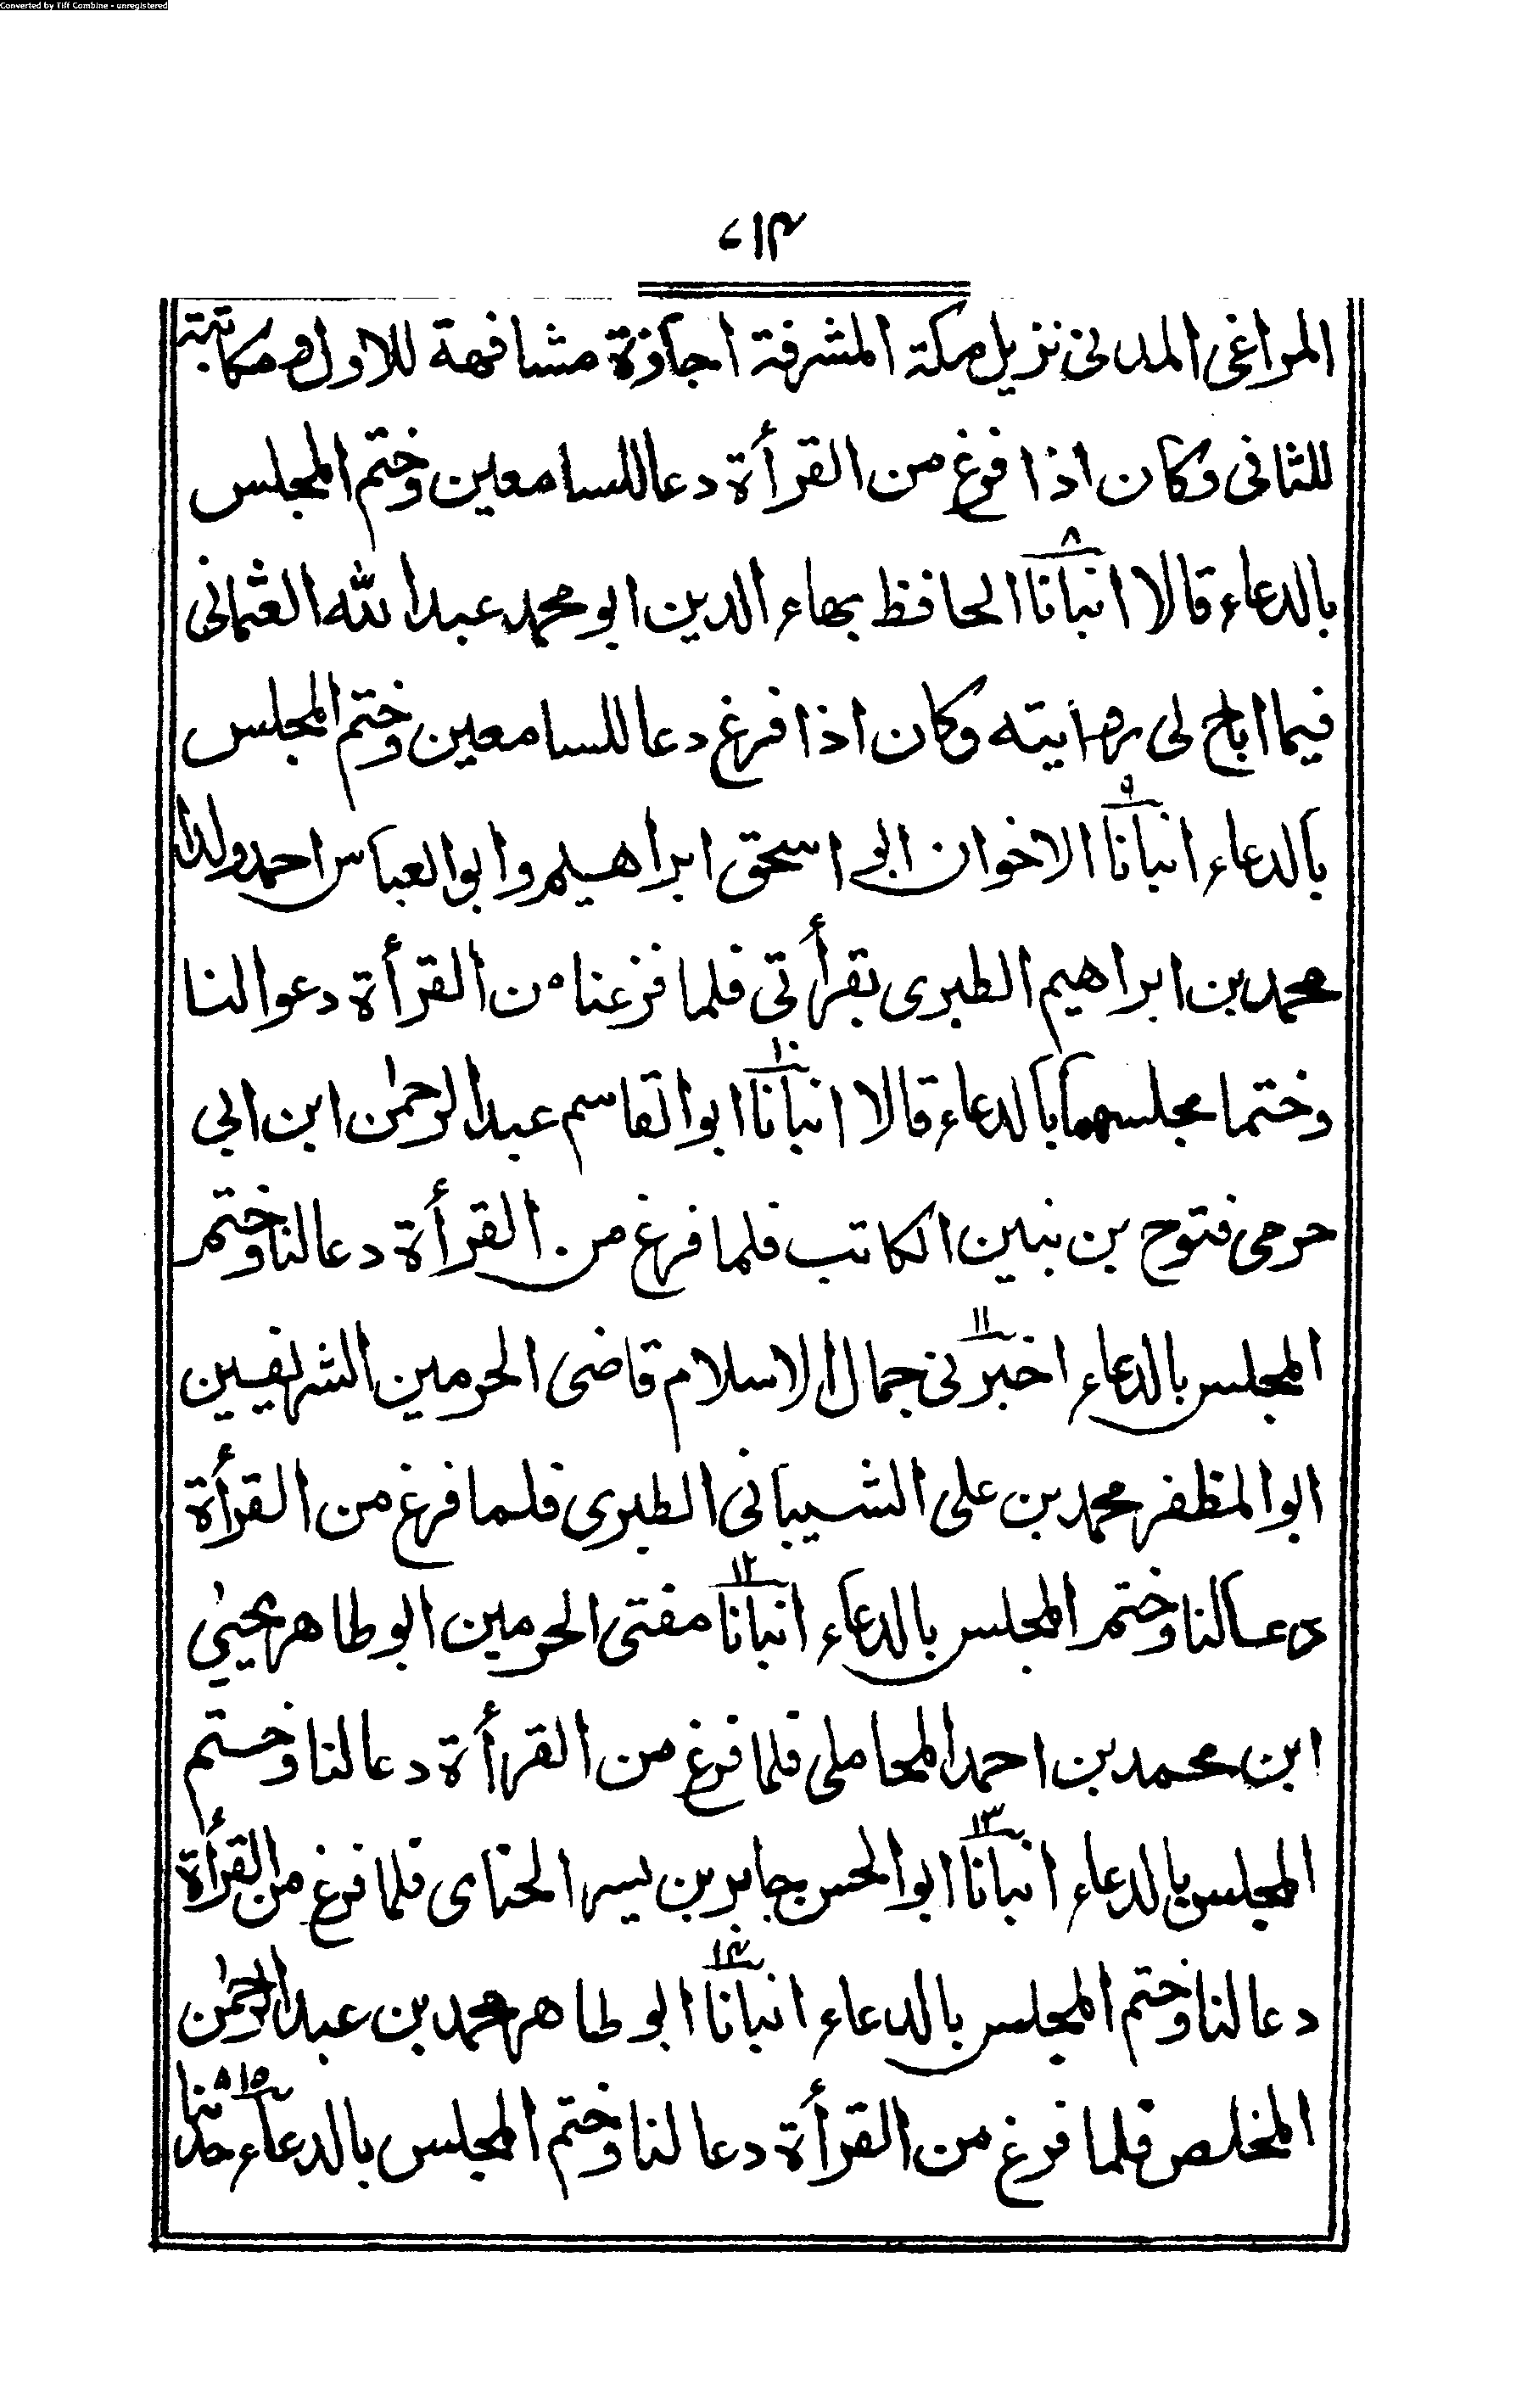 Converted by Tiff Combine - unregistered
المراغى المدنى نزيل مكة المشرفة اجازة مشافهة للاول ومكاتبة
للثانى وكان اذا فرغ من القرأة دعا للسامعين وختم المجلس
بالدعاء قالا انبانا ٨ الحافظ بهاء الدين ابو محمد عبد الله العثمانى
فيما اباح لى روايته وكان اذا فرغ دعا للسامعين وختم المجلس
بالدعاء انبانا ٩ الاخوان ابى اسحق ابراهيم وابو العباس احمد ولدا
محمد بن ابراهيم الطبرى بقرأتى فلما فرغنا من القرأة دعوا لنا
وختما مجلسهما بالدعاء قالا انبانا ١٠ ابو القاسم عبد الرحمٰن ابن ابى
حرمى فتوح بن بنين الكاتب فلما فرغ من القرأة دعا لنا وختم
المجلس بالدعاء اخبرنى ١١ جمال الاسلام قاضى الحرمين الشريفين
ابو المظفر محمد بن على الشيبانى الطبرى فلما فرغ من القرأة
دعا لنا وختم المجلس بالدعاء انبانا ١٢ مفتى الحرمين ابو طاهر يحيىٰ
ابن محمد بن احمد المحاملى فلما فرغ من القرأة دعا لنا وختم
المجلس بالدعاء انبانا ١٣ ابو الحسن جابر بن يسر الحنائى فلما فرغ من القرأة
دعا لنا وختم المجلس بالدعاء انبانا ١٤ ابو طاهر محمد بن عبد الرحمٰن
المخلص فلما فرغ من القرأة دعا لنا وختم المجلس بالدعاء ١٥ حدثنا